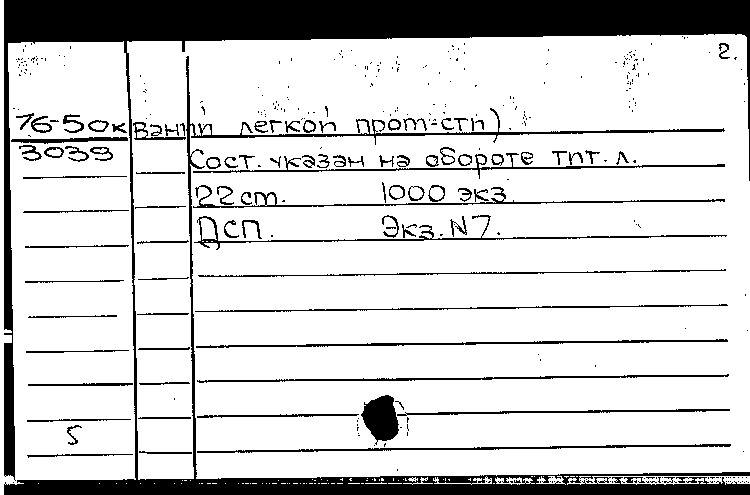 2.
76-50к ваний легкой пром-сти).
3039 Сост. указан на обороте тит. л.
22 ст. 1000 экз.
ДСП. Экз. N 7.
5